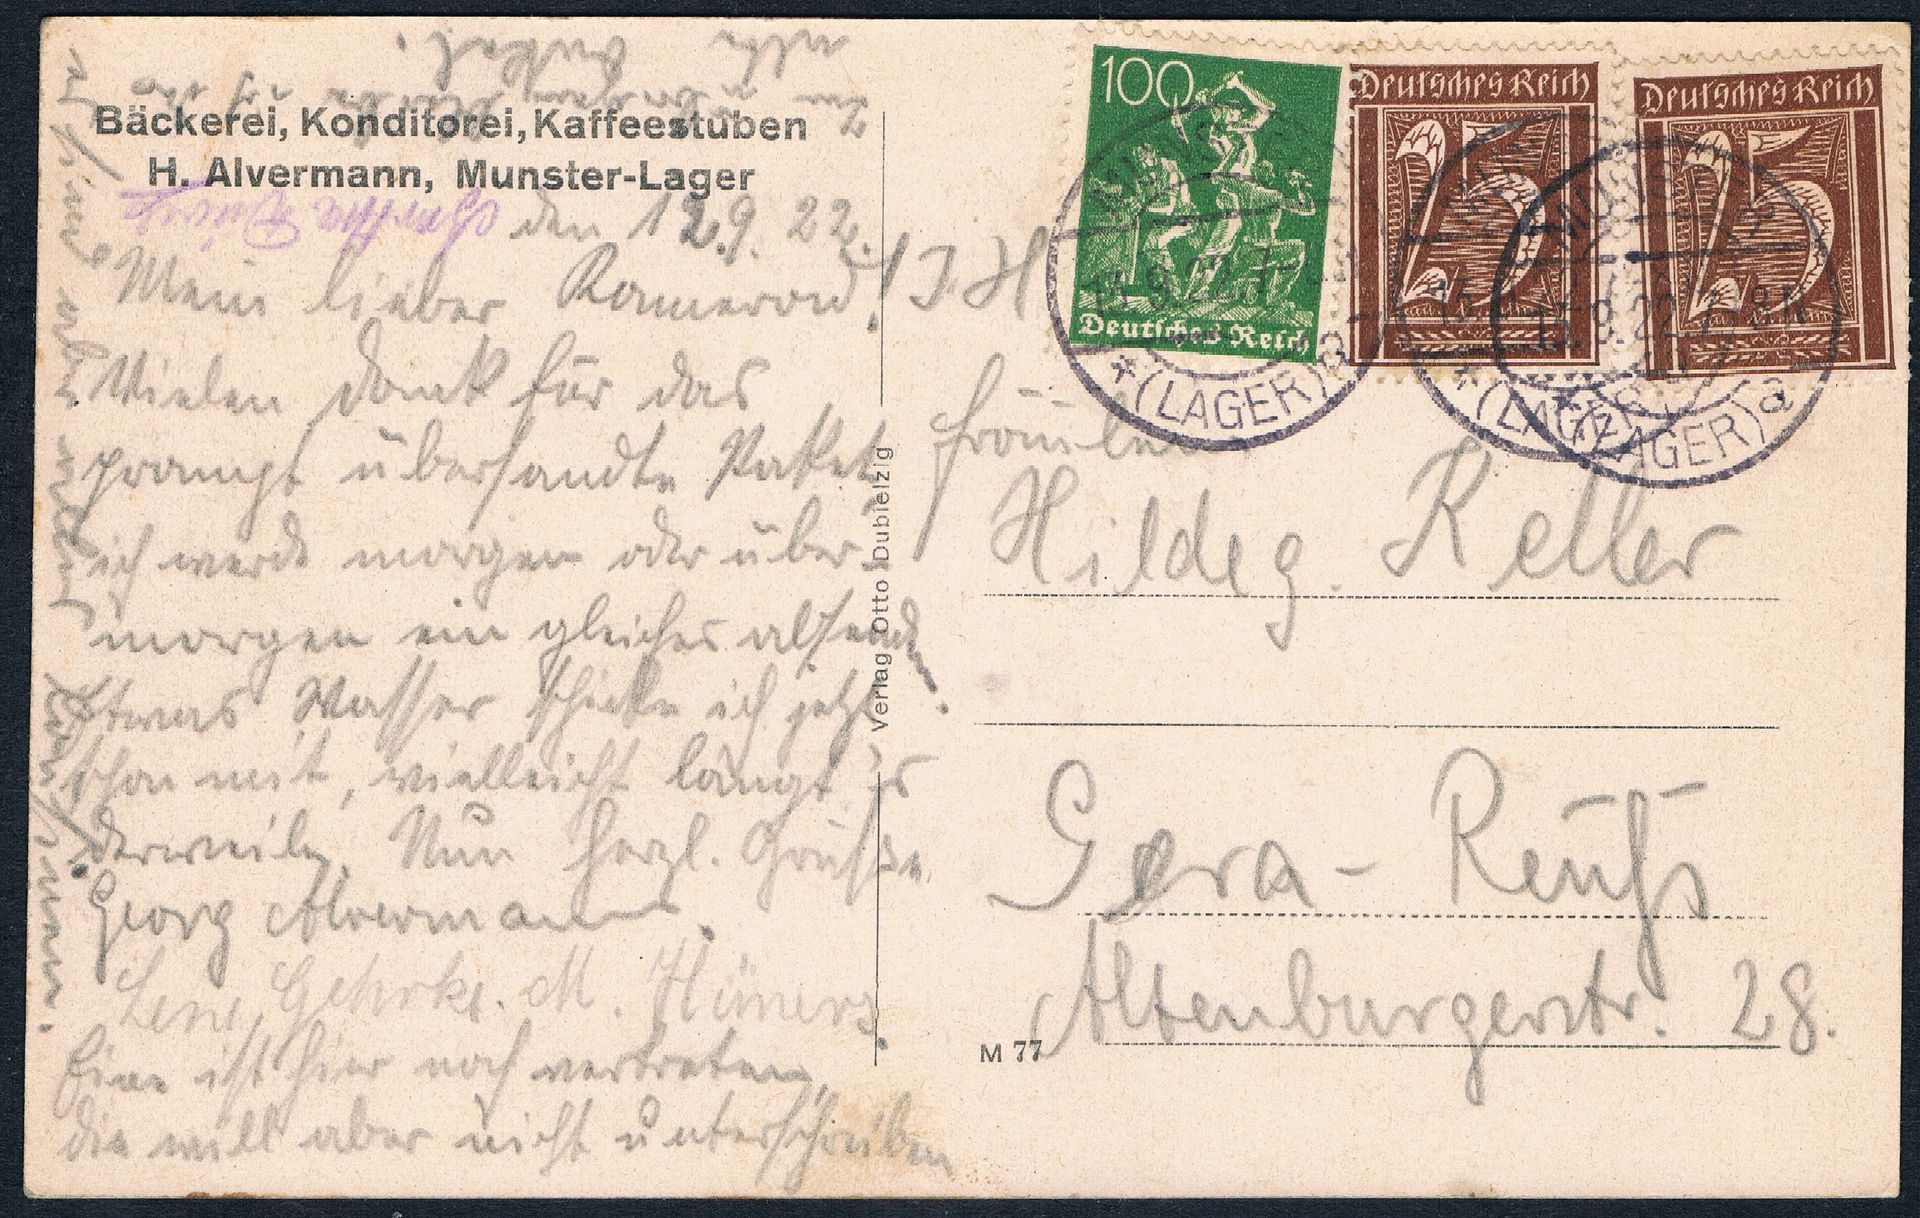 Bäckerei, Konditorei, Kaffeestuben
H. Alvermann, Munster-Lager
den 12.9.22.
Mein lieber Kamerad!
Vielen Dank für das
prompt übersandte Paket,
ich werde morgen oder über-
morgen ein gleiches absenden.
Etwas Wasser schicke ich jetzt
schon mit, vielleicht längt's
derweile. Nun herzl. Grüsse
Georg Alvermann.
Lene Gehrke. M. Hüners
Eine ist hier noch vertreten,
die will aber nicht unterschreiben
Verlag Otto Dubielzig
100
Deutsches Reich
Deutsches Reich
25
Deutsches Reich
25
MUNSTER
(LAGER) a
MUNSTER
(LAGER)
MUNSTER
(LAGER) a
I. H
Fräulein
Hildeg. Keller
Gera-Reuß
Altenburgerstr. 28.
M 77